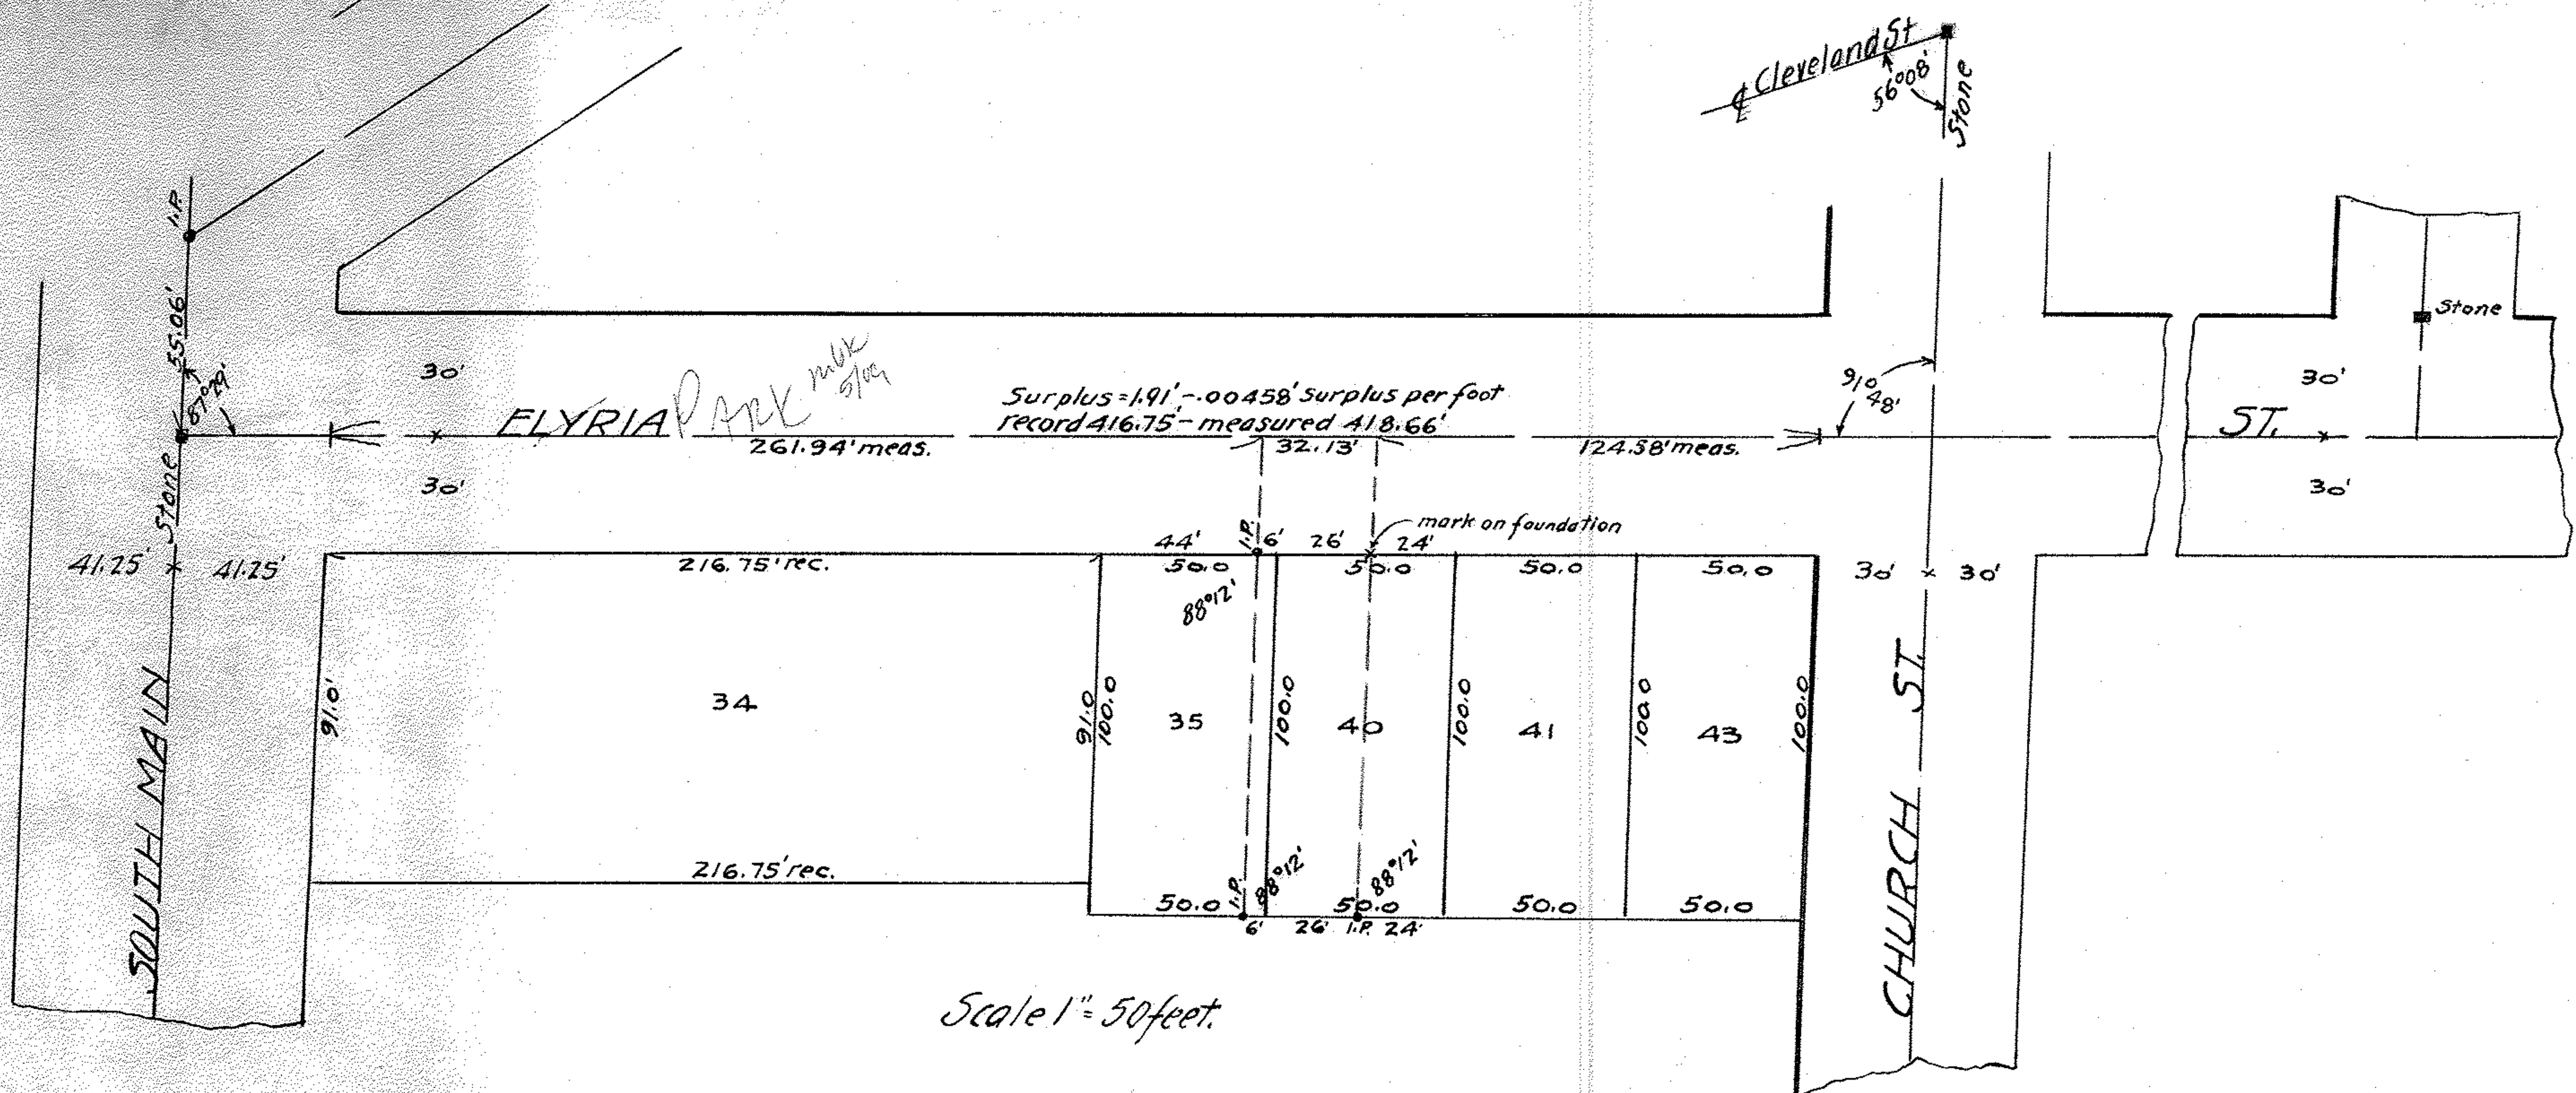 ℄ Cleveland St
56°08'
Stone
I.P.
55.06'
87°29'
Stone
30'
ELYRIA PARK mbk
5/09
Surplus=1.91' -.00458' Surplus per foot
record 416.75' - measured 418.66'
261.94' meas.
32.13'
124.58' meas.
91°48'
30'
ST.
Stone
30'
30'
mark on foundation
44'
I.P.
6'
26'
24'
41.25' 41.25'
216.75' rec.
50.0
50.0
50.0
50.0
30' 30'
88°12'
91.0'
34
91.0
100.0
35
100.0
40
100.0
41
100.0
43
100.0
SOUTH MAIN
CHURCH ST.
216.75' rec.
50.0
I.P.
88°12'
50.0
88°12'
50.0
50.0
6'
26'
I.P.
24'
Scale 1" = 50 feet.